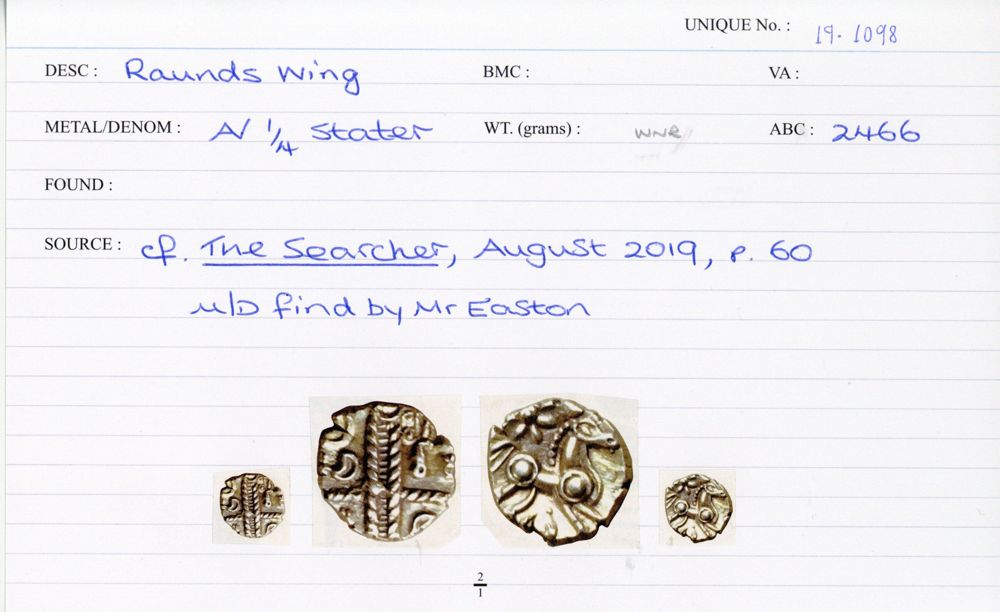 UNIQUE No. : 19. 1098
DESC : Raunds Wing BMC : VA :
METAL/DENOM : A/ 1/4 stater WT. (grams) : WNR ABC : 2466
FOUND :
SOURCE : cf. The Searcher, August 2019, p. 60
M/D find by Mr Easton
2
1